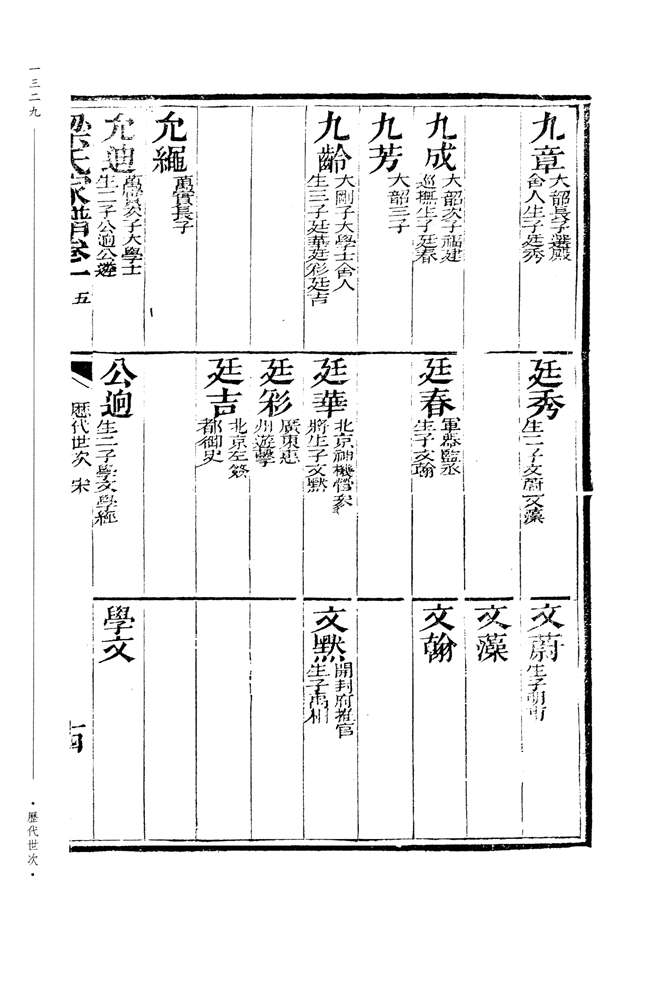 九章 大韶長子選殿
舍人生子廷秀
九成 大韶次子福建
巡撫生子廷春
九芳 大韶三子
九齡 大剛子大學士舍人
生三子廷華廷彩廷吉
允繩 萬實長子
允迪 萬實次子大學士
生二子公逈公遊
廷秀 生二子文蔚文藻
廷春 軍器監丞
生子文翰
廷華 北京神機營參
將生子文默
廷彩 廣東惠
州遊擊
廷吉 北京左僉
都御史
公逈 生二子學文學經
文蔚 生子朝
文藻
文翰
文默 開封府推官
生子禹相
學文
梁氏家譜卷一 五
歷代世次 宋
十四
一三二九
·歷代世次·